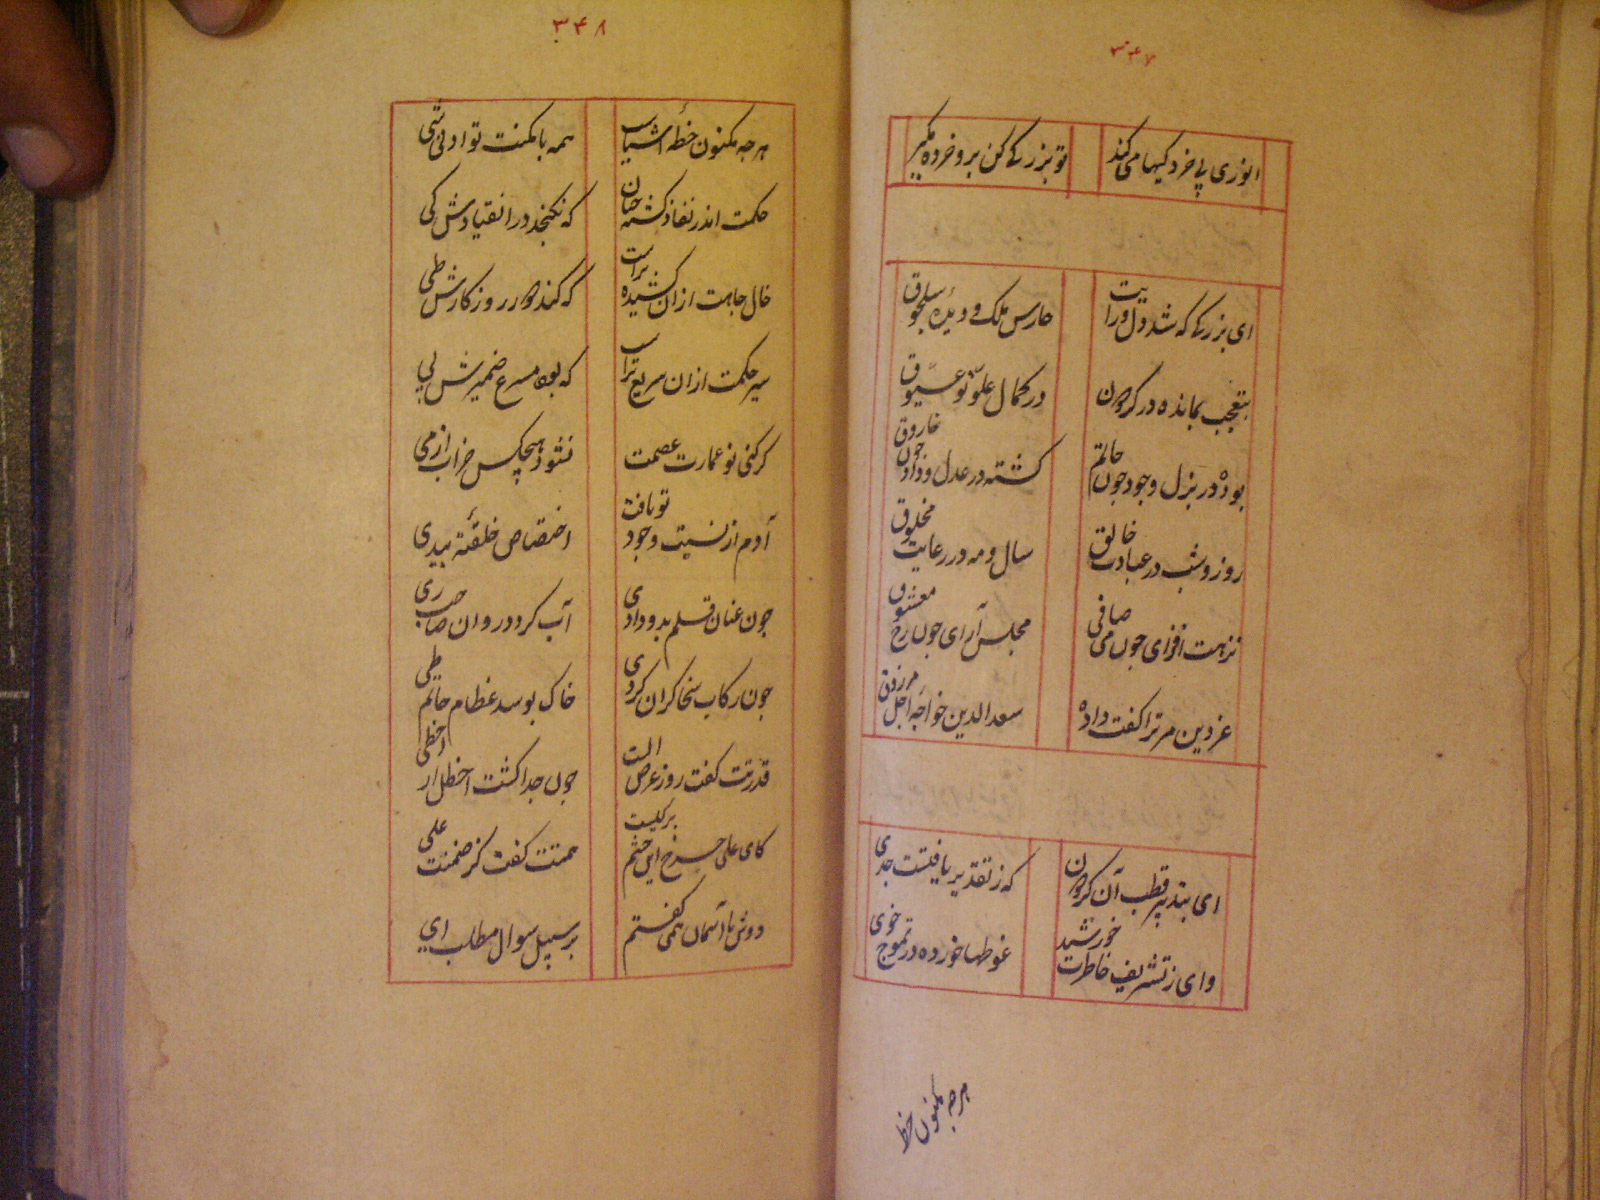 ۳۴۷
انوری پی خرد کیها می کند تو بزرکی کن برو خرده مکیر
ای بزرکی که شد دل و رایت حارس ملک و دیدهٔ سلجوق
بتعجب بمانده در کردون در کمال علوّ تو عیّوق
بوده در بزل وجود جون حاتم کشته در عدل و داد جون فاروق
روز و شب در عبادت خالق سال و مه در رعایت مخلوق
نزهت افزای جون می صافی مجلس آرای جون رخ معشوق
عزدین مر ترا کفت داده سعدالدین خواجه اجل مرزوق
ای بتدبیر قطب آن کردون که ز تقدیر یافتست جدی
وای ز تشریف خاطرت خورشید غوطها خورده در تموج خوی
هرجه مکنون خط
۳۴۸
هرجه مکنون خطهٔ اشیاست همه با مکنت تو ادنی شی
حکمت اندر نفاذ کشته جنان که نکنجد در انقیادش کی
خال جاهت ازان کشیده تراست که کند دور روزکارش طی
سیر حکمت ازان سریع تراست که بود مسرع ضمیرش پی
کر کنی نو عمارت عصمت نشود هیجکس خراب از می
آدم از نسبت وجود تو یافت اختصاص خلقته بیدی
جون عنان قلم بدو دادی آب کردد روان صاحب ری
جون رکاب سخا کران کردی خاک بوسد عظام حاتم طی
قدرتت کفت روز عرض الست جون جدا کشت اخطل از اخطی
کای علی جرخ این حشم برکیست همتت کفت کز ضمنت علی
دوش با آسمان همی کفتم بر سبیل سوال مطلب ای